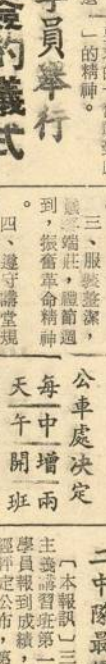 」的精神。
學員舉行
簽約儀式
三、服裝整潔，
端莊，禮節週
到，振奮革命精神
。
四、遵守講堂規
公車處决定
每中增兩
天午開班
二中隊最
〔本報訊〕三
主義講習班第
學員報到成績，
經評定公布，第